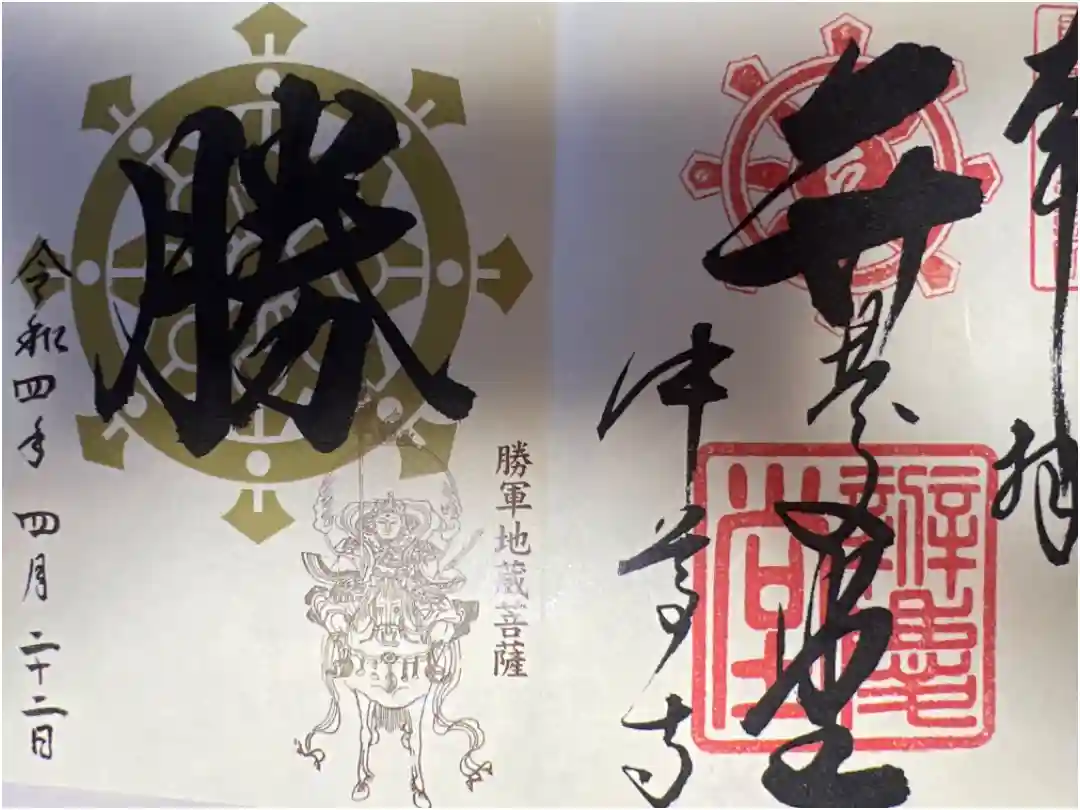 奉拝
弁慶堂
中尊寺
勝軍地蔵菩薩
勝
令和四年 四月 二十二日